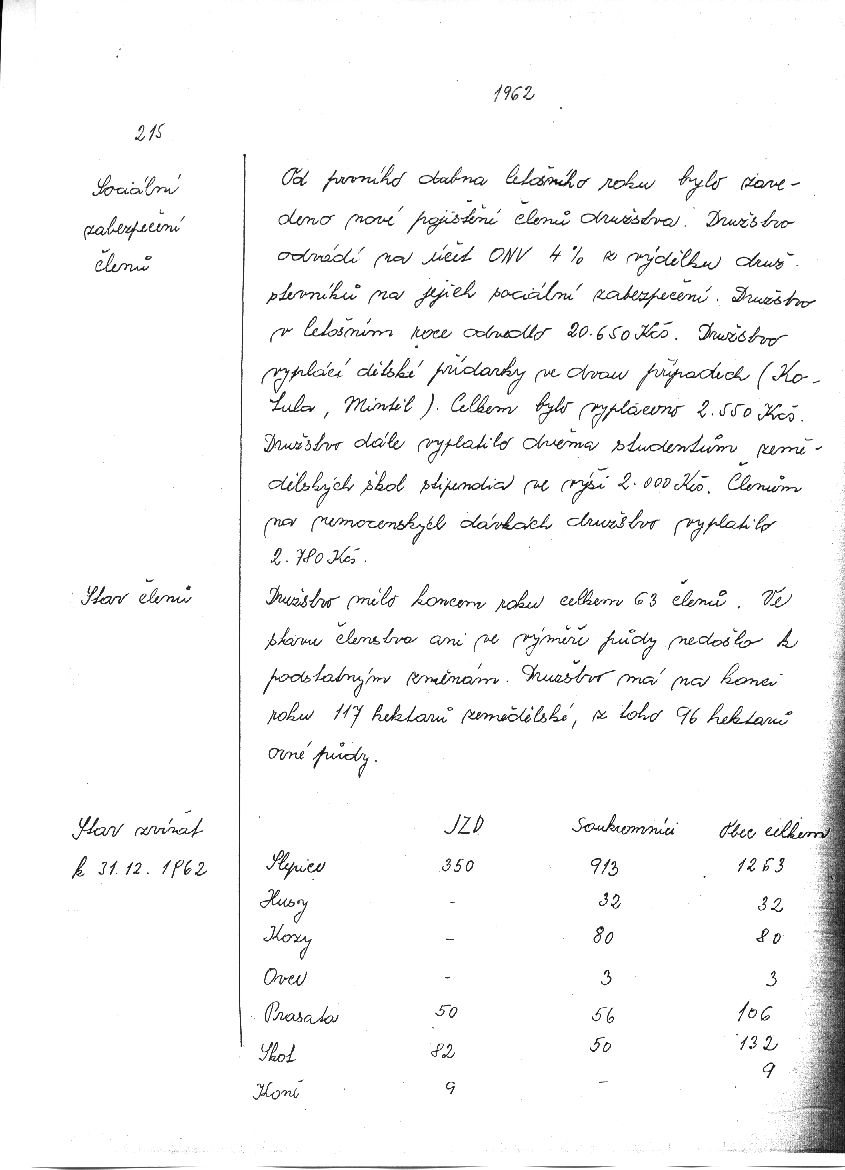 1962
215
Sociální
zabezpečení
členů
Od prvního dubna letošního roku bylo zave-
deno nové pojištění členů družstva. Družstvo
odvádí na účet ONV 4% z výdělku druž-
stevníků na jejich sociální zabezpečení. Družstvo
v letošním roce odvedlo 20.650 Kčs. Družstvo
vyplácí dětské přídavky ve dvou případech (Ko-
tula, Mintěl). Celkem bylo vyplaceno 2.550 Kčs.
Družstvo dále vyplatilo dvěma studentům země-
dělských škol stipendia ve výši 2.000 Kčs. Členům
na nemocenských dávkách družstvo vyplatilo
2.780 Kčs.
Stav členů
Družstvo mělo koncem roku celkem 63 členů. Ve
stavu členstva ani ve výměře půdy nedošlo k
podstatným změnám. Družstvo má na konci
roku 117 hektarů zemědělské, z toho 96 hektarů
orné půdy.
Stav zvířat
k 31.12. 1962
JZD Soukromníci Obec celkem
Slepice 350 913 1263
Husy - 32 32
Kozy - 80 80
Ovce - 3 3
Prasata 50 56 106
Skot 82 50 132
Koní 9 - 9